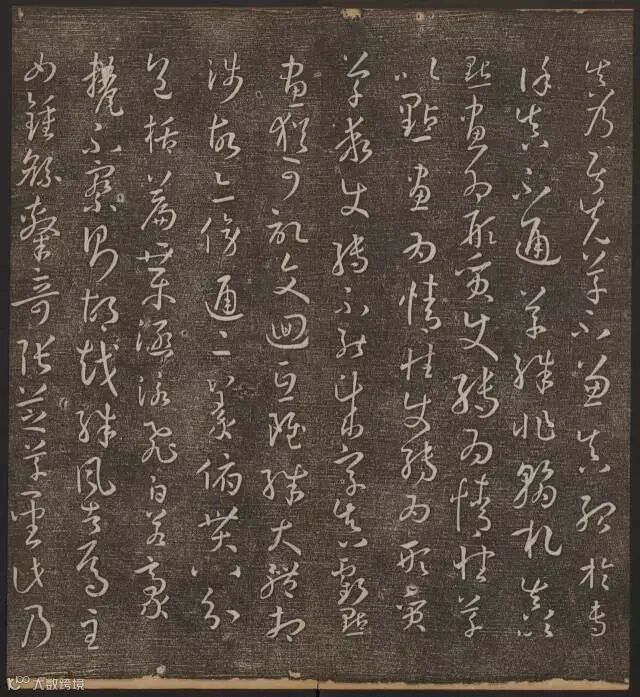 真乃居先草不兼真殆於專
謹真不通草殊非翰札真以
點畫為形質使轉為情性草
以點畫為情性使轉為形質
草乖使轉不能成字真虧點
畫猶可記文迴互雖殊大體相
涉故亦傍通二篆俯貫八分
包括篇章涵泳飛白若豪
氂不察則胡越殊風者焉至
如鍾繇隸奇張芝草聖此乃
大数跨境